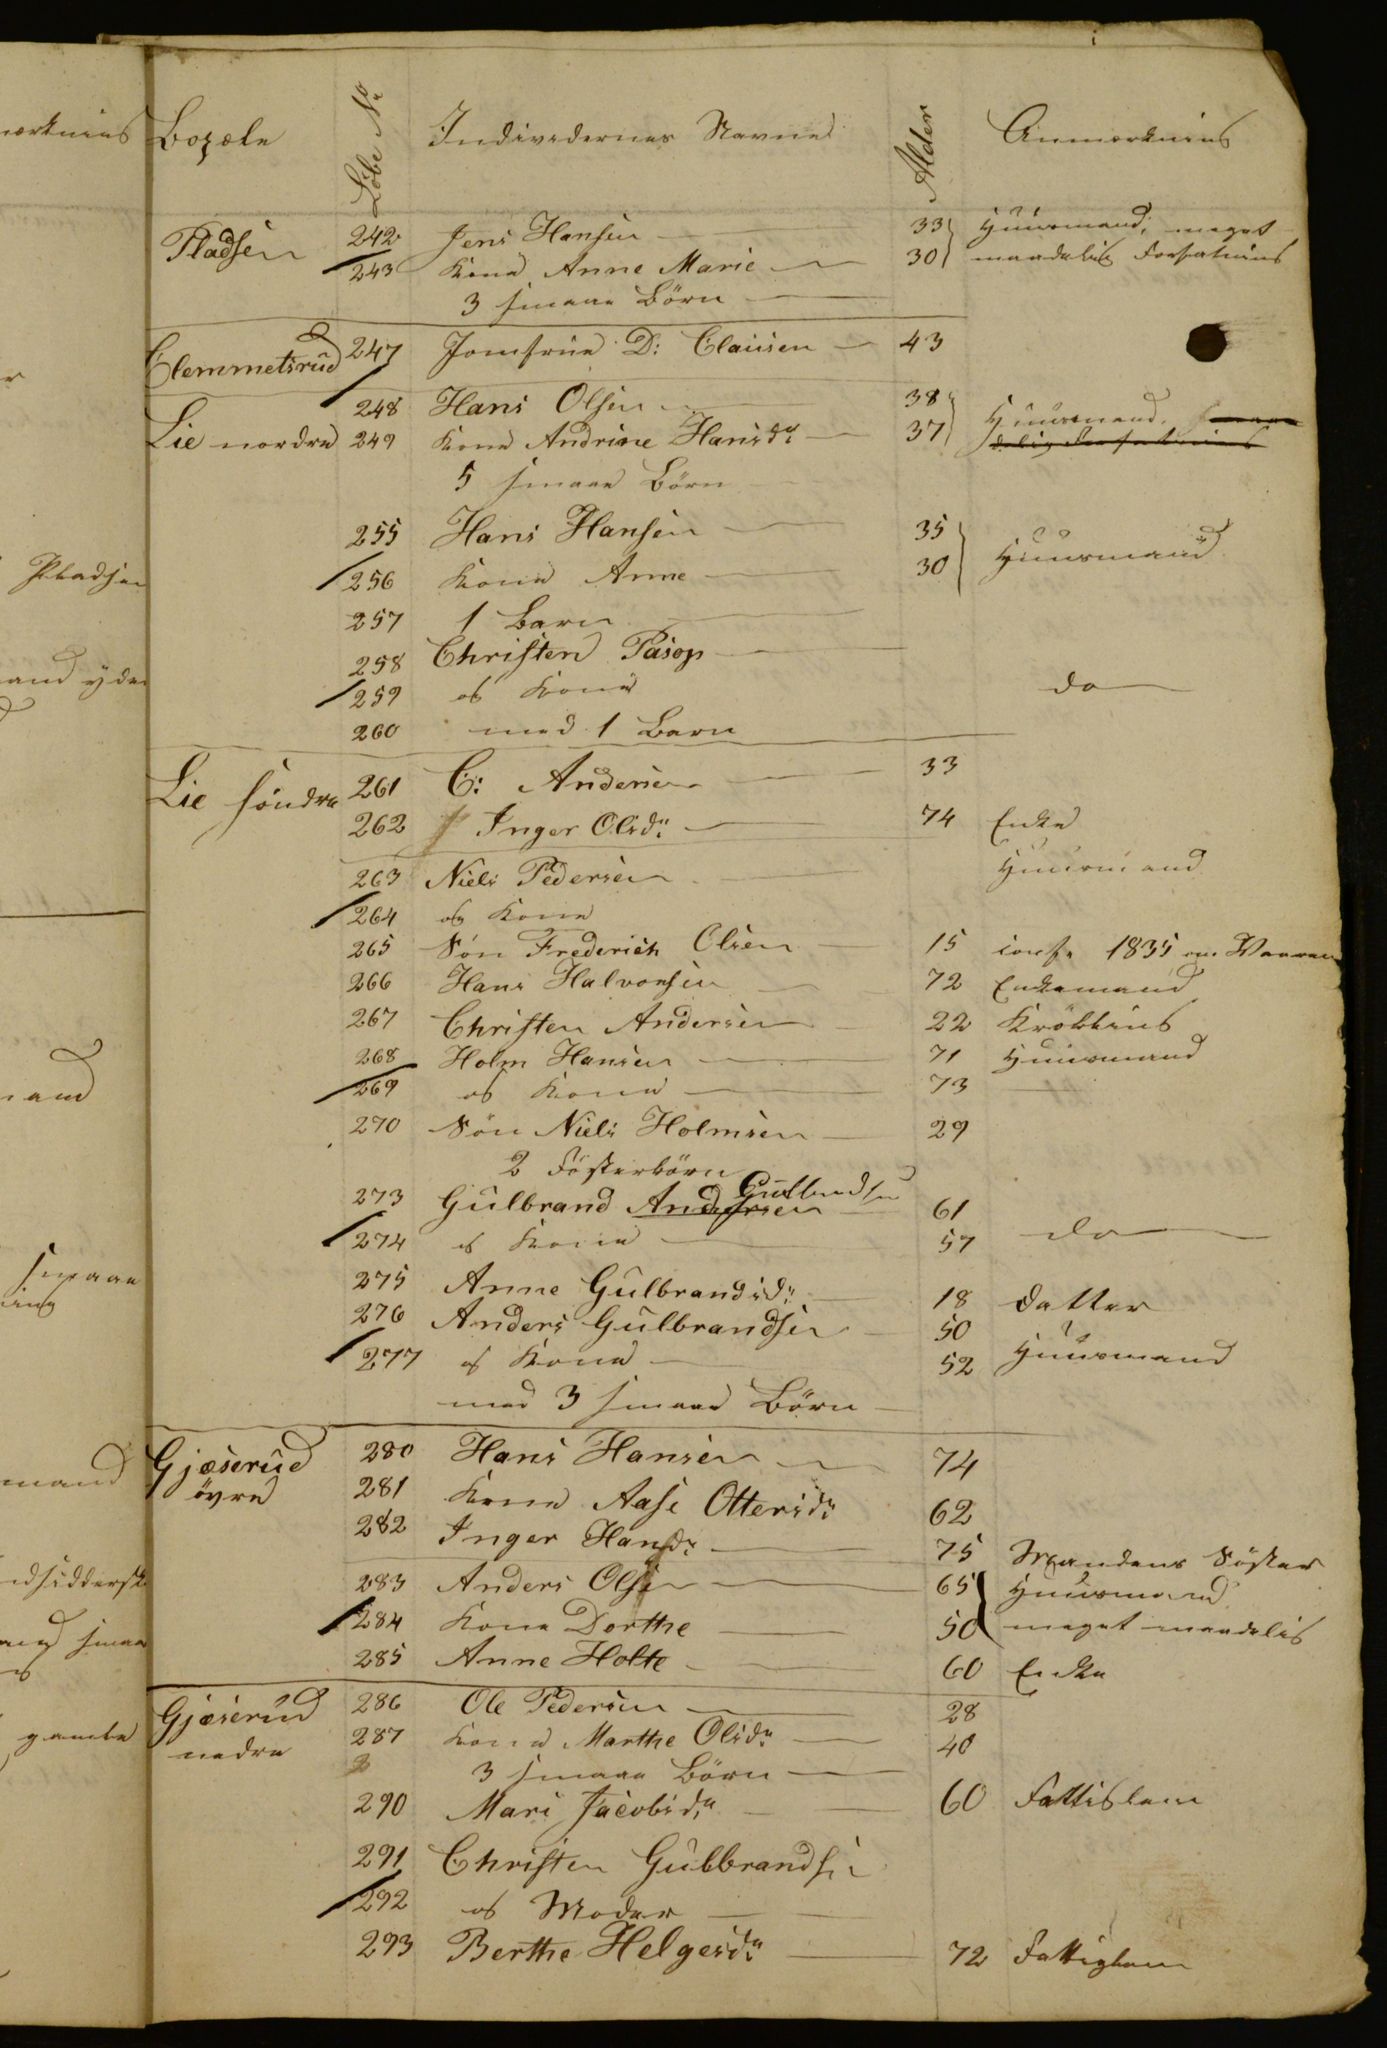 Bopæle Løbe No Individernes Navne Alder Anmærkning
Pladsen 242 Jens Hansen 33 Huusmand, meget
243 Kone Anne Marie 30 maadelig Forfatning
3 smaae Børn
Clemmetsrud 247 Jomfrue D: Clausen 43
248 Hans Olsen 38 Huusmand,
Lie nordre 249 Kone Andrine Hansdr 37 delig Forfatning
5 smaae Børn
255 Hans Hansen 35 Huusmand
256 Kone Anne 30
257 1 Barn
258 Christen Pasop
259 og Kone do
260 med 1 Barn
Lie søndre 261 C: Andersen 33
262 Inger Olsdr 74 Enke
263 Niels Pedersen Huusmand
264 og Kone
265 Søn Frederich Olsen 15 conf. 1835 om Vaaren
266 Hans Halvorsen 72 Enkemand
267 Christen Andersen 22 Krøbling
268 Holm Hansen 71 Huusmand
269 og Kone 73
270 Søn Niels Holmsen 29
2 Fösterbörn
273 Gulbrand Andersen Gulbrandsen 61
274 og Kone 57 do
275 Anne Gulbrandsdr 18 Datter
276 Anders Gulbrandsen 50 Huusmand
277 og Kone 52
med 3 smaae Børn
Gjæserud 280 Hans Hansen 74
øvre 281 Kone Aase Ottersdr 62
282 Inger Hansdr 75 Mandens Søster
283 Anders Olsen 65 Huusmand
284 Kone Dorthe 50 meget maadelig
285 Anne Holte 60 Enke
Gjæserud 286 Ole Pedersen 28
nedre 287 Kone Marthe Olsdr 40
3 smaae Børn
290 Mari Jacobsdr 60 Fattiglem
291 Christen Gulbrandsen
292 og Moder
293 Berthe Helgesdr 72 Fattiglem